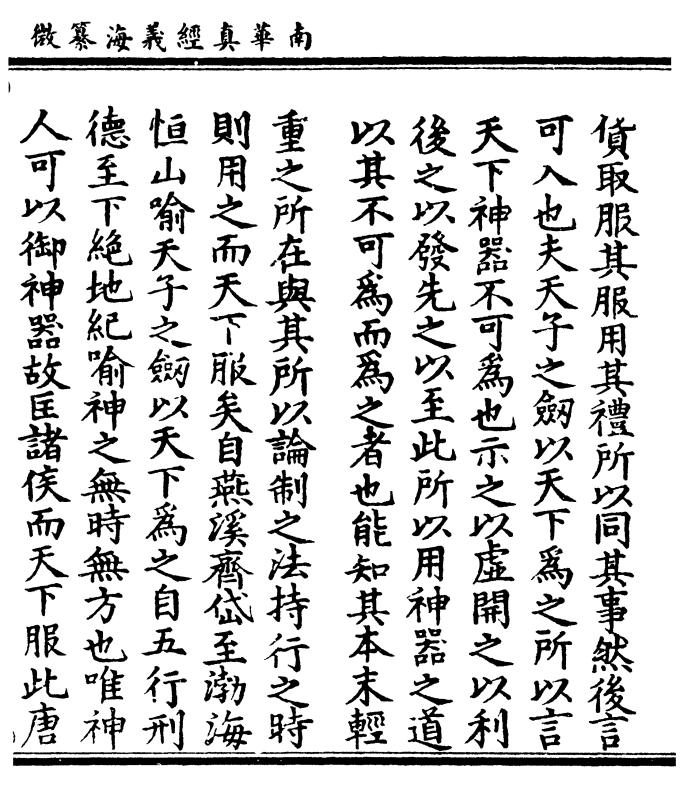 南華真經義海纂微
貨取服其服用其禮所以同其事然後言
可入也夫天子之劔以天下為之所以言
天下神器不可為也示之以虛開之以利
後之以發先之以至此所以用神器之道
以其不可為而為之者也能知其本末輕
重之所在與其所以論制之法持行之時
則用之而天下服矣自燕溪齊岱至渤海
恒山喻天子之劔以天下為之自五行刑
德至下絶地紀喻神之無時無方也唯神
人可以御神器故匡諸侯而天下服此唐